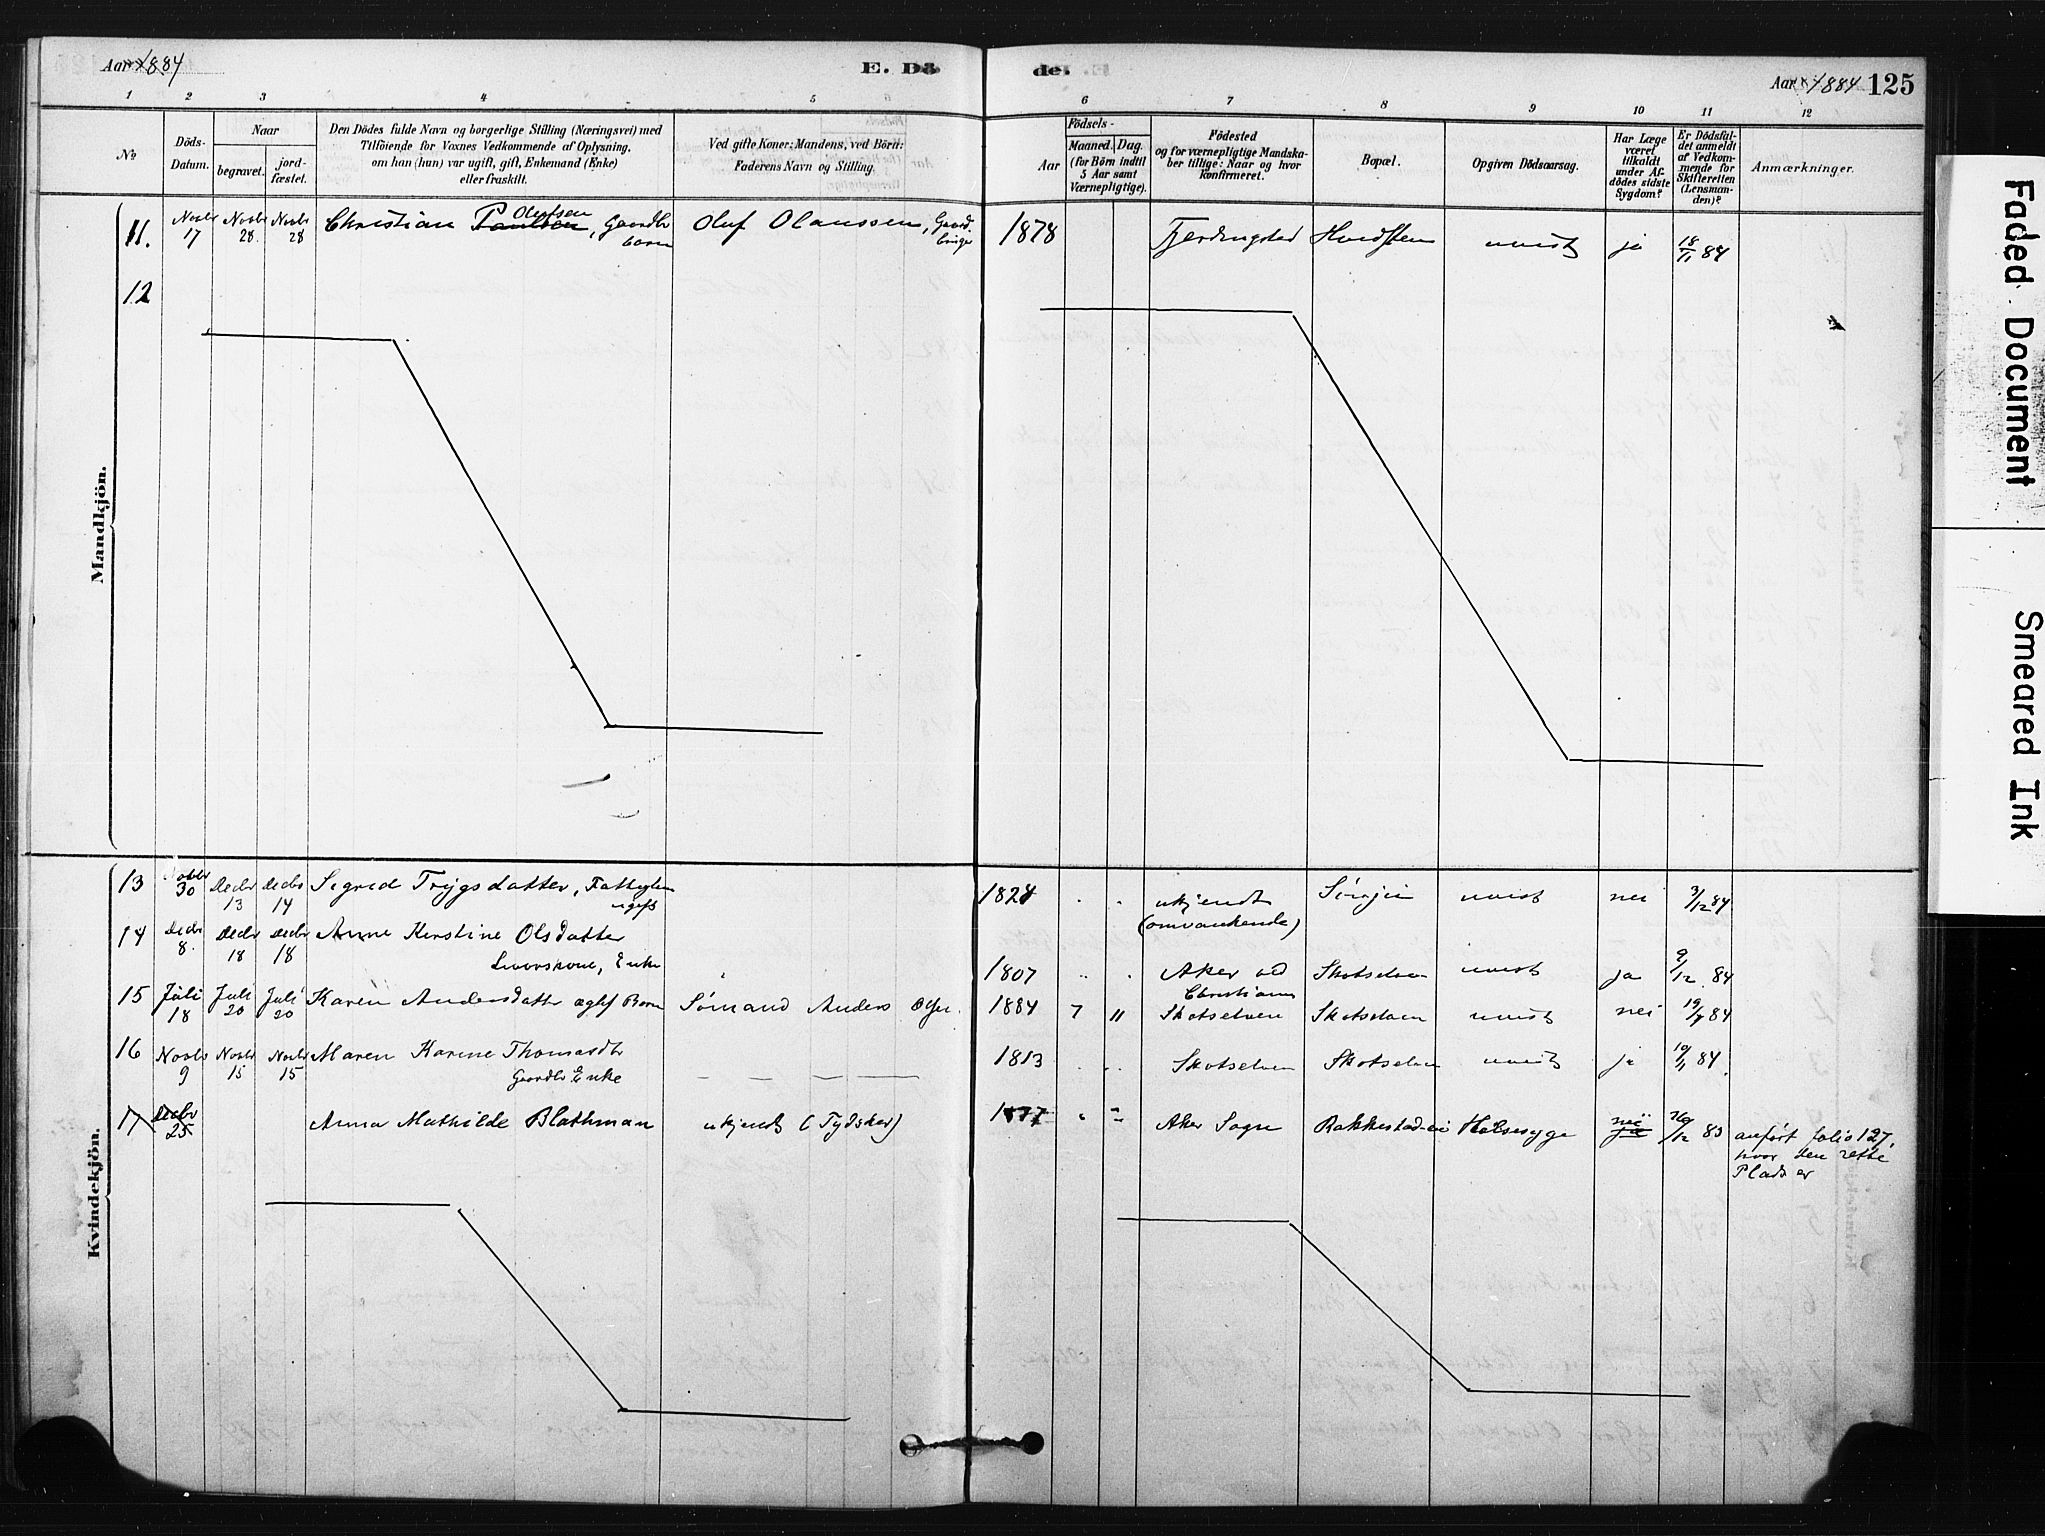 Aar 1884
E. Dö
de.
Aar 1884 125
1 2 3 4 5 6 7 8 9 10 11 12
No
Döds-
Datum.
Naar
begravet.
jord-
fæstet.
Den Dödes fulde Navn og borgerlige Stilling (Næringsvei) med
Tilföiende for Voxnes Vedkommende af Oplysning,
om han (hun) var ugift, gift, Enkemand (Enke)
eller fraskilt.
Ved gifte Koner: Mandens, ved Börn:
Faderens Navn og Stilling.
Födsels-
Aar
Maaned. Dag.
(for Börn indtil
5 Aar samt
Værnepligtige).
Födested
og for værnepligtige Mandska-
ber tillige: Naar og hvor
Konfirmeret.
Bopæl.
Opgiven Dödsaarsag.
Har Læge
været
tilkaldt
under Af-
dödes sidste
Sygdom?
Er Dödsfal-
det anmeldt
af Vedkom-
mende for
Skifteretten
(Lensman-
den)?
Anmærkninger.
Mandkjön.
11. Novbr 17 Novbr 28. Novbr 28 Christian Paulsen Olufsen, Gaardbr barn Oluf Olaussen, Gaard. 1878 Fjerdingstad uvist ja 18/11 84
12
Kvindekjön.
13 Novbr 30 Decbr 13 Decbr 14 Sigrid Trygsdatter, ugift 1824 . . ukjendt (omvankende) uvist nei 3/12 84
14 Decbr 8. Decbr 18 Decbr 18 Anne Kerstine Olsdatter
Enke 1807 . . Aker ved Christiania Skotselven uvist ja 9/12 84
15 Juli 18 Juli 20 Juli 20 Karen Andersdatter ægtef Barn Sömand Anders 1884 7 " Skotselven Skotselven uvist nei 19/7 84
16 Novbr 9 Novbr 15 Novbr 15 Maren Karine Thomasdtr
Gaardbr Enke — — — — 1813 . . Skotselven Skotselven uvist ja 10/11 84.
17 Decbr 25 Anna Mathilde Blathman ukjendt (Tydsker) 1877 " " Aker Sogn Halssyge nei ja 26/12 83 anfört folio 127,
hvor den rette
Plads er
Faded Document
Smeared Ink